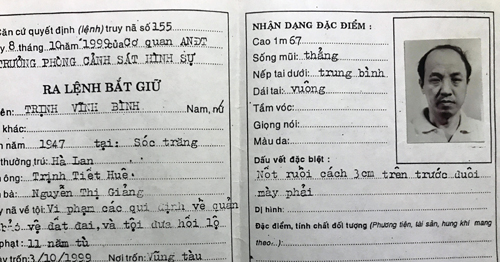 Căn cứ quyết định (lệnh) truy nã số 155
8 tháng 10 năm 1999 của Cơ quan ANĐT
TRƯỞNG PHÒNG CẢNH SÁT HÌNH SỰ
RA LỆNH BẮT GIỮ
tên: TRỊNH VĨNH BÌNH Nam, nữ
khác:
năm 1947 tại: Sóc trăng
thường trú: Hà Lan
ông: Trịnh Tiết Huê
bà: Nguyễn Thị Giảng
nã về tội: Vi phạm các qui định về quản
về đất đai, và tội đưa hối lộ
phạt: 11 năm tù
trốn: 3/10/1999 Nơi trốn: Vũng tàu
NHẬN DẠNG ĐẶC ĐIỂM :
Cao 1m 67
Sống mũi: thẳng
Nếp tai dưới: trung bình
Dái tai: vuông
Tầm vóc:
Giọng nói:
Màu da:
Dấu vết đặc biệt :
Nốt ruồi cách 3cm trên trước đuôi
mày phải
Dị hình:
Đặc điểm, tính chất đối tượng (Phương tiện, tài sản, hung khí mang
theo...)